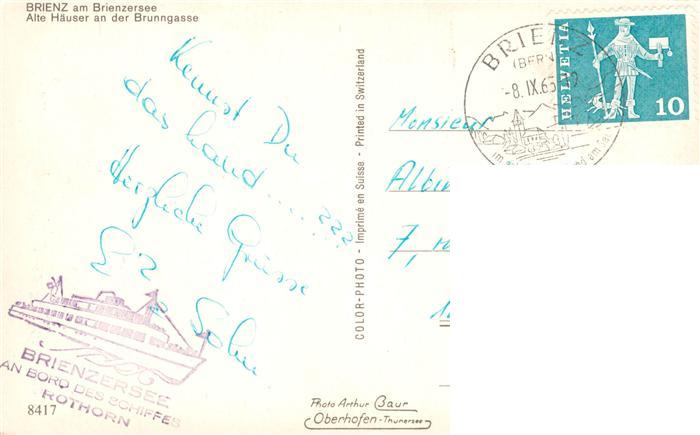 BRIENZ am Brienzersee
Alte Häuser an der Brunngasse
Kennst Du
das Land....???
Herzliche Grüsse
Sohn
BRIENZERSEE
AN BORD DES SCHIFFES
ROTHORN
8417
COLOR-PHOTO - Imprimé en Suisse - Printed in Switzerland
Photo Arthur Baur
Oberhofen-Thunersee
BRIENZ
(BERN)
-8.IX.65
HELVETIA
10
Monsieur
7,